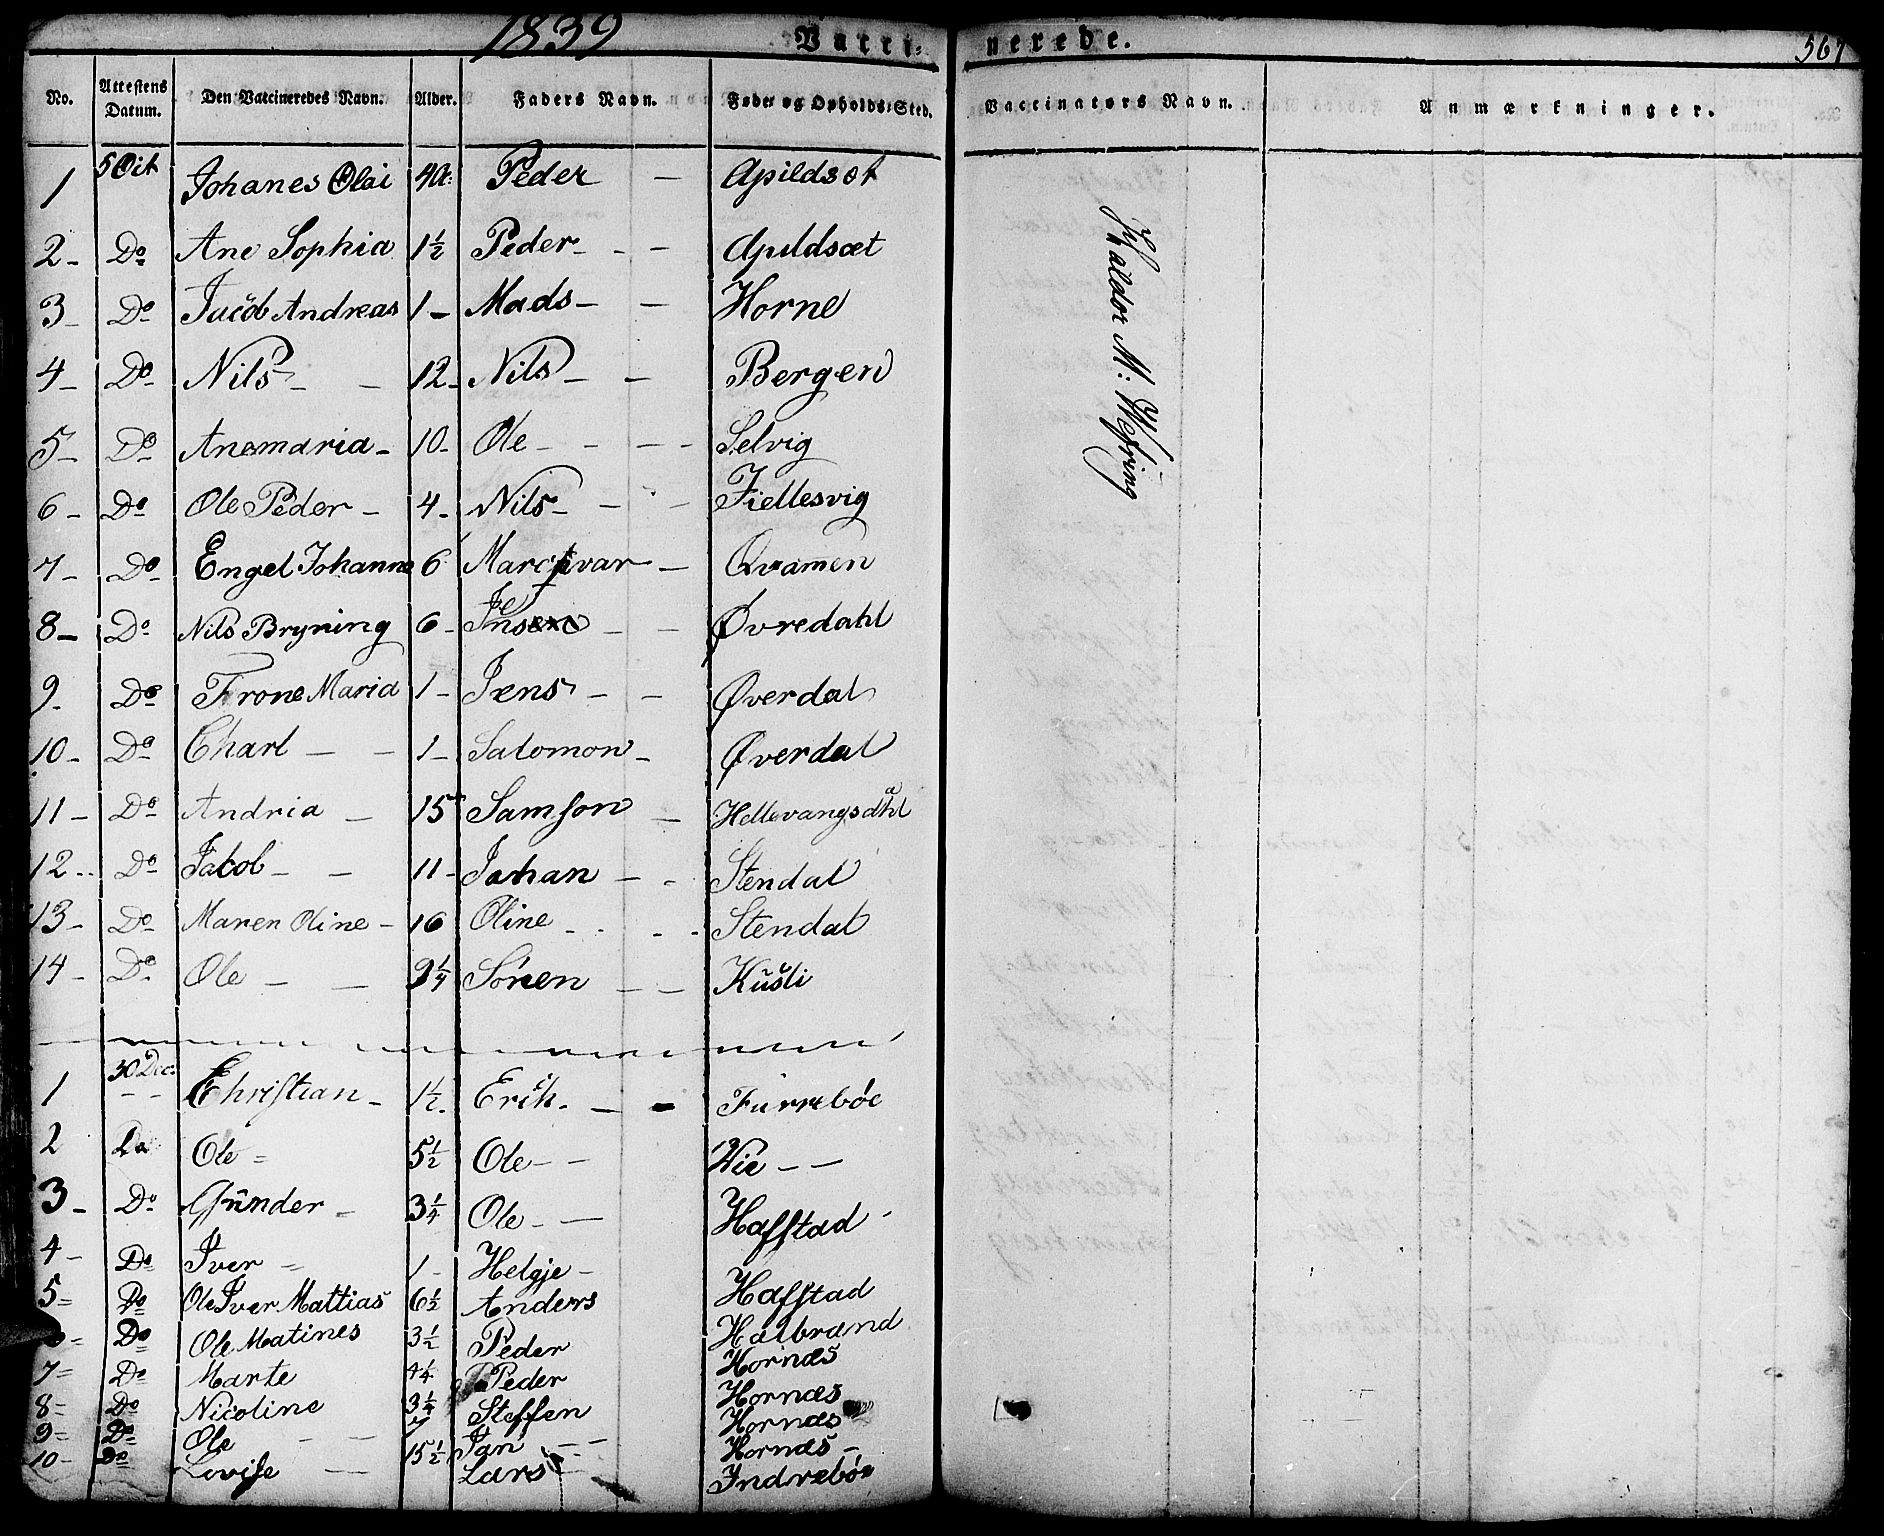 1839 Vacci- nerede. 567
No. Attestens Datum. Den Vaccineredes Navn. Alder. Faders Navn. Føde og Opholds-Sted. Vaccinateurs Navn. Anmærkninger.
1 5 Oct Johanes Olai 4 A: Peder — Apildsæt
2 - Do Ane Sophia 1½ Peder - - — Apuldsæt
3 - Do Jacob Andreas 1 - Mads - — Horne
4 - Do Nils - — 12 - Nils - — Bergen
5 - Do Anemaria - 10 - Ole - - - - Selvig
6 - Do Ole Peder - 4 - Nils - - - Fiellesvig
7 - Do Engel Johanne 6 — Qvamen
8 - Do Nils Bryning 6 - Jens - — Øvredahl
9 - Do Trone Maria 1 - Jens - — Øverdal
10 - Do Charl — - 1 - Salomon - Øverdal
11 - Do Andria — 15 Samson — Hellevangsdahl
12 - Do Jacob - — 11 - Johan — - Stendal
13 - Do Maren Oline - 16 Oline - - - - Stendal
14 - Do Ole - — Sören — — Kusli
Haldor M: Wefring
1 30 Dec: Christian - 1½ - Erik - — - Furrebøe
2 Do Ole = 5½ Ole - - Wie - -
3 - Do Gunder - 3¼ Ole - — Hafstad -
4 - Do Iver - 1 - Helgje -
5 = Do Ole Iver Mattias 6½ Anders Hafstad
6 = Do Ole Matines 3½ Peder Halbrand
7 = Do Marte 4¼ Peder Hornæs
8 = Do Nicoline 3¼ Steffen Hornæs
9 = Do Ole - - 7 Jan - - Hornæs
10 - Do Lovise - 15½ Lars - Hornæs -
Indrebøe